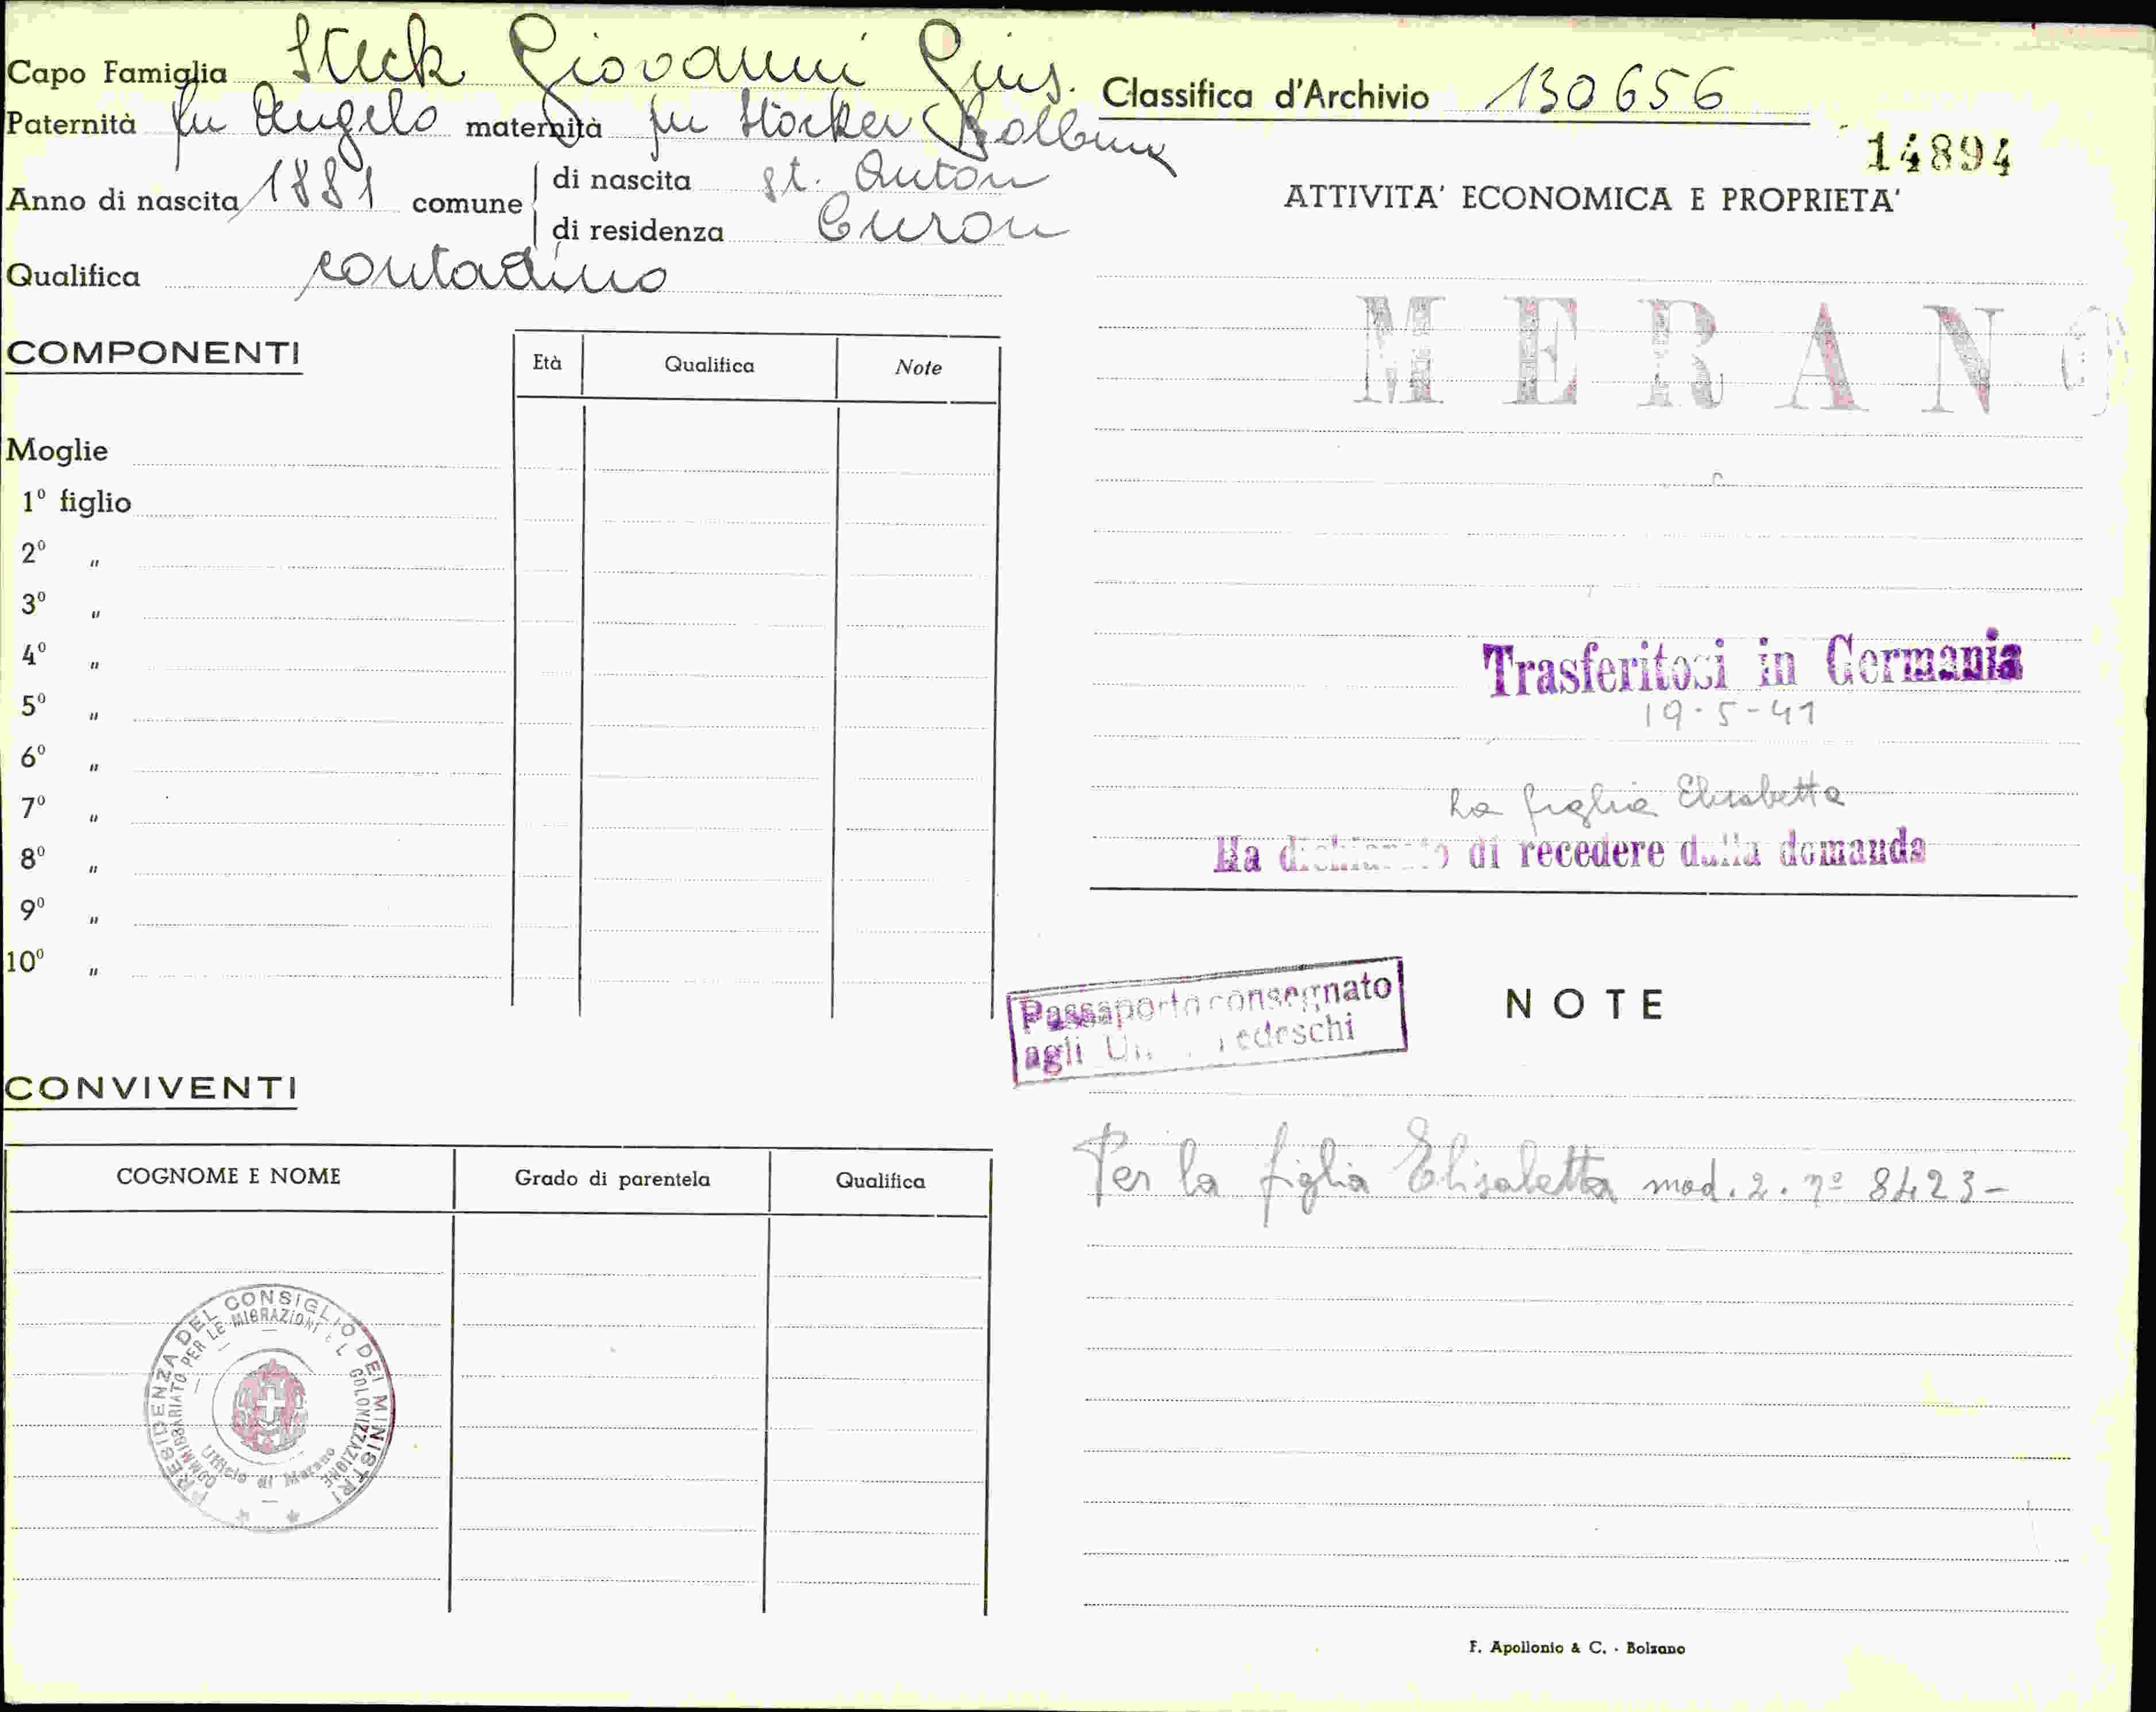 Capo Famiglia Steck Giovanni Gius.
Classifica d'Archivio 130656
Paternità fu Angelo maternità fu Stocker
14894
Anno di nascita 1881 comune di nascita St. Anton
di residenza Curon
Qualifica contadino
ATTIVITA' ECONOMICA E PROPRIETA'
MERANO
COMPONENTI
Età Qualifica Note
Moglie
1º figlio
2º "
3º "
4º "
5º "
6º "
7º "
8º "
9º "
10º "
Trasferitosi in Germania
19-5-41
La figlia Elisabetta
Ha dichiarato di recedere dalla domanda
Passaporto consegnato
agli Tedeschi
NOTE
Per la figlia Elisabetta mod. 2. nº 8423-
CONVIVENTI
COGNOME E NOME Grado di parentela Qualifica
PRESIDENZA DEL CONSIGLIO DEI MINISTRI
COMMISSARIATO PER LE MIGRAZIONI E L COLONIZZAZIONE
Ufficio di Merano
F. Apollonio & C. - Bolzano